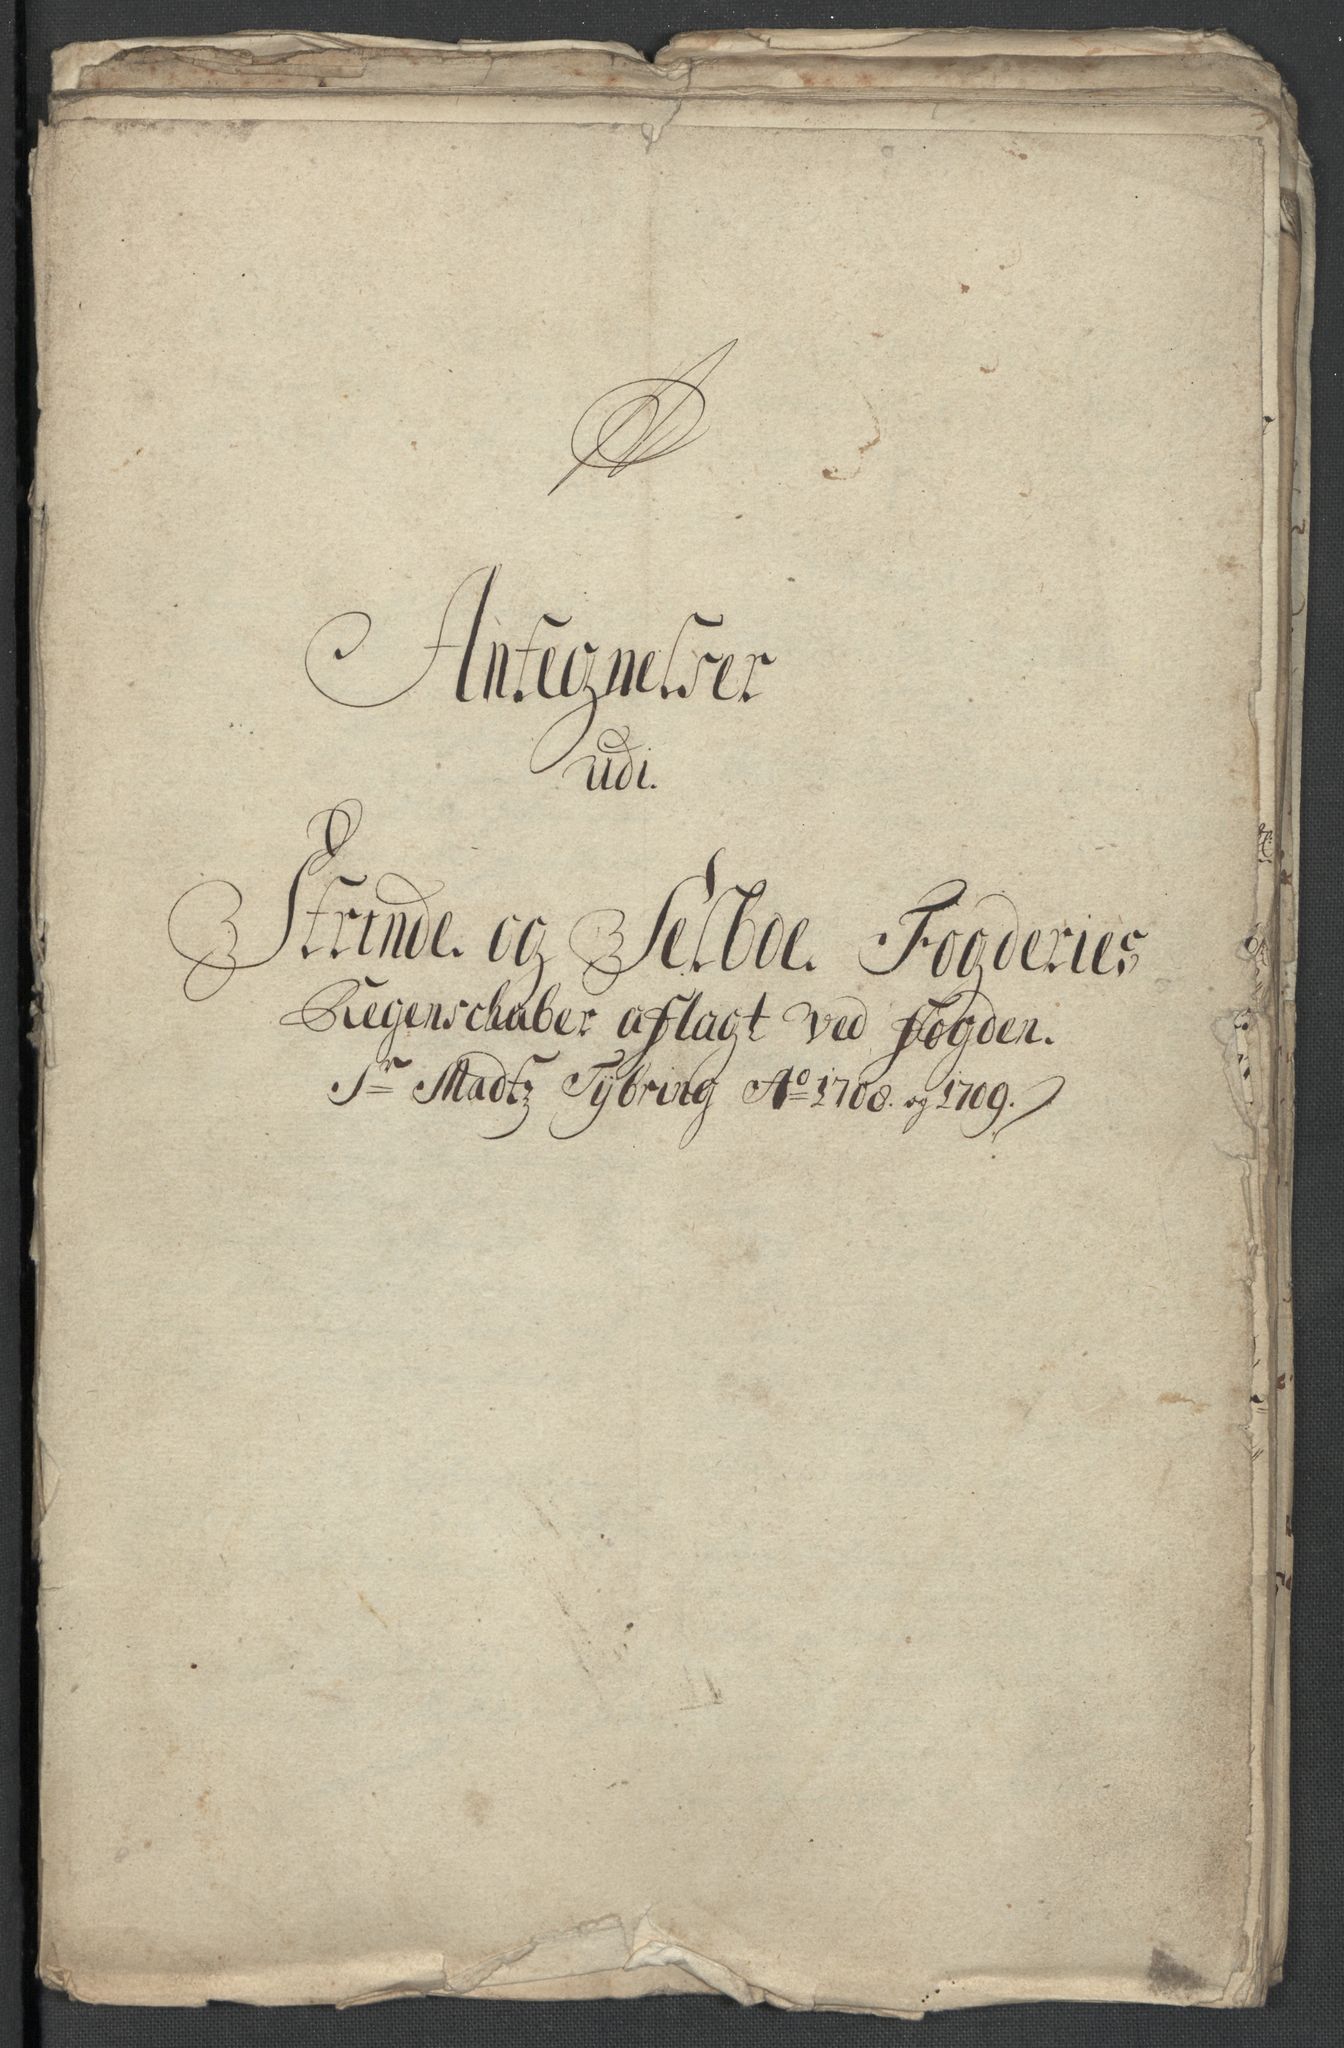 Antegnelser
udi.
Strinde. og Selboe. Fogderies
Regenschaber aflagt ved Fogden.
Sr Madtz Tÿbring Ao 1708. og 1709.